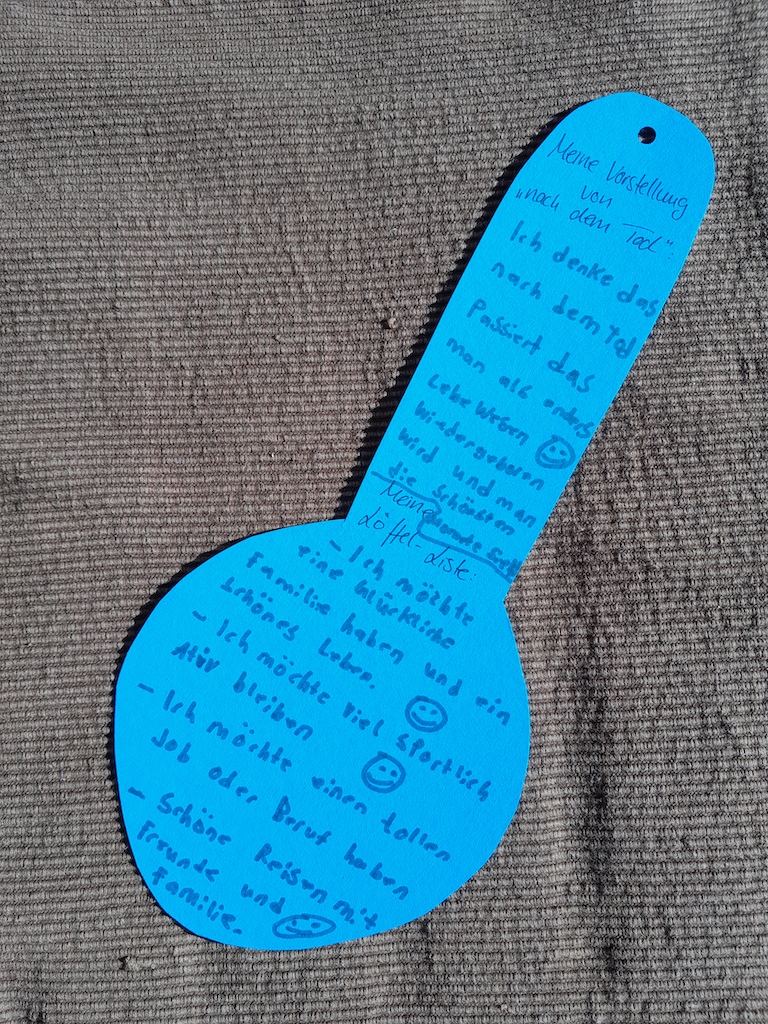 Meine Vorstellung
von
„nach dem Tod":
Ich denke das
nach dem Tod
Passiert das
man als anders
Lebe Wesen
Wiedergeboren
wird und man
die Schönsten
Meine
Löffel-Liste:
- Ich möchte
eine Glückliche
Familie haben und ein
schönes Leben.
- Ich möchte viel Sportlich
Ativ bleiben
- Ich möchte einen tollen
Job oder Beruf haben
- Schöne Reisen mit
Freunde und
Familie.